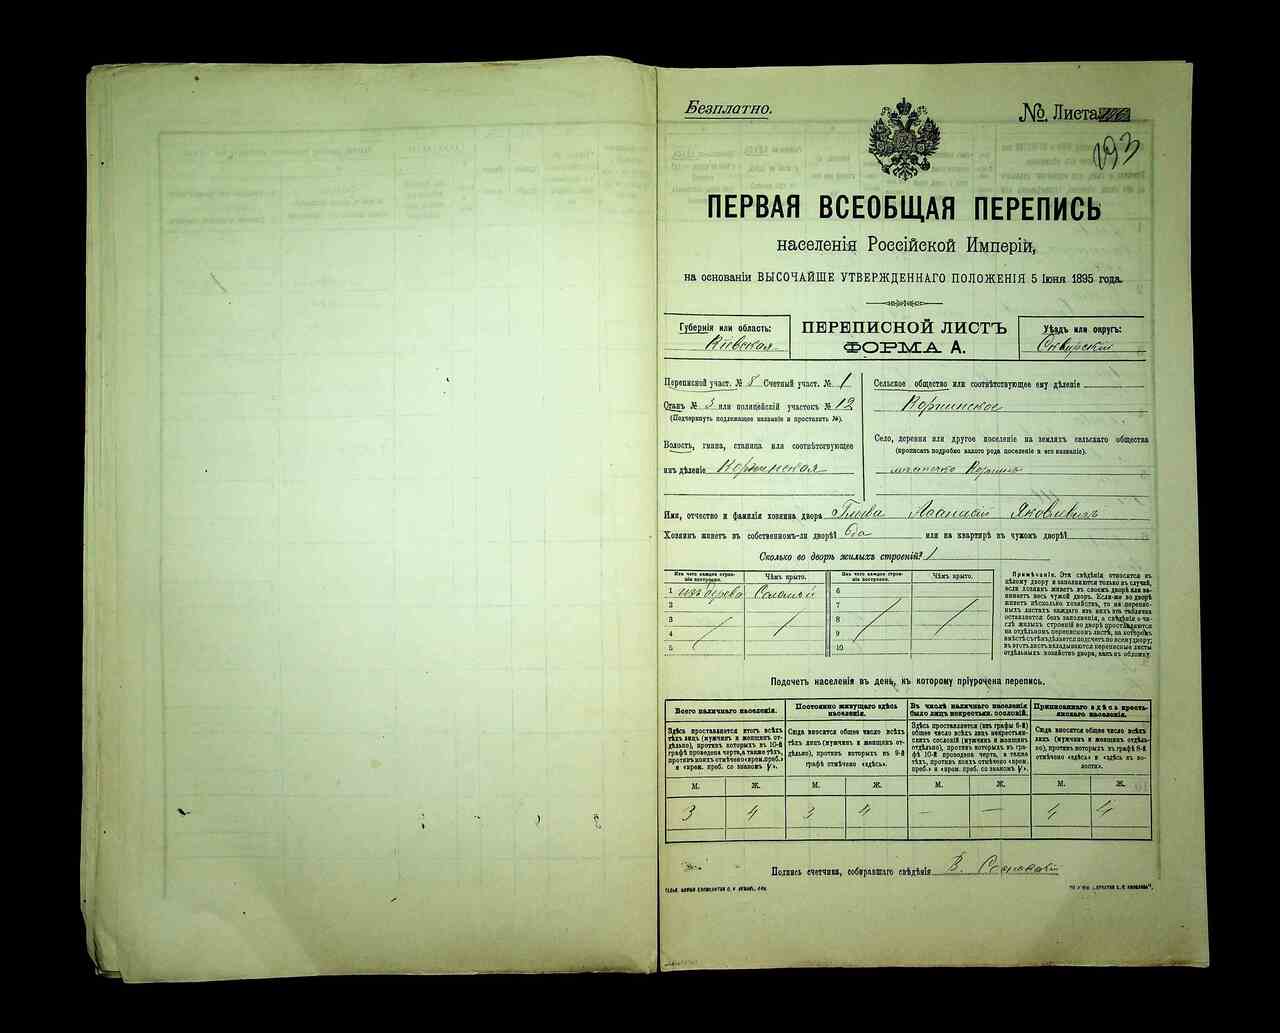 Безплатно.
№ Листа
193
ПЕРВАЯ ВСЕОБЩАЯ ПЕРЕПИСЬ
населенія Россійской Имперіи,
на основаніи ВЫСОЧАЙШЕ УТВЕРЖДЕННАГО ПОЛОЖЕНІЯ 5 Іюня 1895 года.
Губернія или область:
Кіевская
ПЕРЕПИСНОЙ ЛИСТЪ
ФОРМА А.
Уѣздъ или округъ:
Сквирскій
Переписной участ. № 8 Счетный участ. № 1
Станъ № 3 или полицейскій участокъ № 12
(Подчеркнуть подлежащее названіе и проставить №).
Волость, гмина, станица или соотвѣтствующее
имъ дѣленіе
Сельское общество или соотвѣтствующее ему дѣленіе
Село, деревня или другое поселеніе на земляхъ сельскаго общества
(прописать подробно какого рода поселеніе и его названіе).
Имя, отчество и фамилія хозяина двора Аѳанасій Яковлевичъ
Хозяинъ живетъ въ собственномъ-ли дворѣ? да или на квартирѣ въ чужомъ дворѣ?
Сколько во дворѣ жилыхъ строеній? 1
Изъ чего каждое строе-
ніе построено.
Чѣмъ крыто.
1 изъ дерева Соломой
2
3
4
5
Изъ чего каждое строе-
ніе построено.
Чѣмъ крыто.
6
7
8
9
10
Примѣчаніе. Эти свѣдѣнія относятся къ
цѣлому двору и заполняются только въ случаѣ,
если хозяинъ живетъ въ своемъ дворѣ или за-
нимаетъ весь чужой дворъ. Если-же во дворѣ
живетъ нѣсколько хозяйствъ, то на перепис-
ныхъ листахъ каждаго изъ нихъ эта табличка
оставляется безъ заполненія, а свѣдѣнія о чи-
слѣ жилыхъ строеній во дворѣ проставляются
на отдѣльномъ переписномъ листѣ, на которомъ
вмѣстѣ съ тѣмъ дѣлается подсчетъ по всему двору;
въ этотъ листъ вкладываются переписные листы
отдѣльныхъ хозяйствъ двора, какъ въ обложку.
Подсчетъ населенія въ день, къ которому пріурочена перепись.
Всего наличнаго населенія.
Здѣсь проставляется итогъ всѣхъ
тѣхъ лицъ (мужчинъ и женщинъ от-
дѣльно), противъ которыхъ въ 10-й
графѣ проведена черта, а также тѣхъ,
противъ коихъ отмѣчено «врем. преб.»
и «врем. преб. со знакомъ V».
Постоянно живущаго здѣсь
населенія.
Сюда вносятся общее число всѣхъ
тѣхъ лицъ (мужчинъ и женщинъ от-
дѣльно), противъ которыхъ въ 9-й
графѣ отмѣчено «здѣсь».
Въ числѣ наличнаго населенія
было лицъ некрестьян. сословій.
Здѣсь проставляется (изъ графы 6-й)
общее число всѣхъ лицъ некрестьян-
скихъ сословій (мужчинъ и женщинъ
отдѣльно), противъ которыхъ въ гра-
фѣ 10-й проведена черта, а также
тѣхъ, противъ коихъ отмѣчено «врем.
преб.» и «врем. преб. со знакомъ V».
Приписаннаго здѣсь кресть-
янскаго населенія.
Сюда вносятся общее число всѣхъ
лицъ (мужчинъ и женщинъ отдѣль-
но), противъ которыхъ въ графѣ 8-й
отмѣчено «здѣсь» и «здѣсь въ во-
лости».
М. Ж. М. Ж. М. Ж. М. Ж.
3 4 3 4 — — 4 4
Подпись счетчика, собиравшаго свѣдѣнія В.